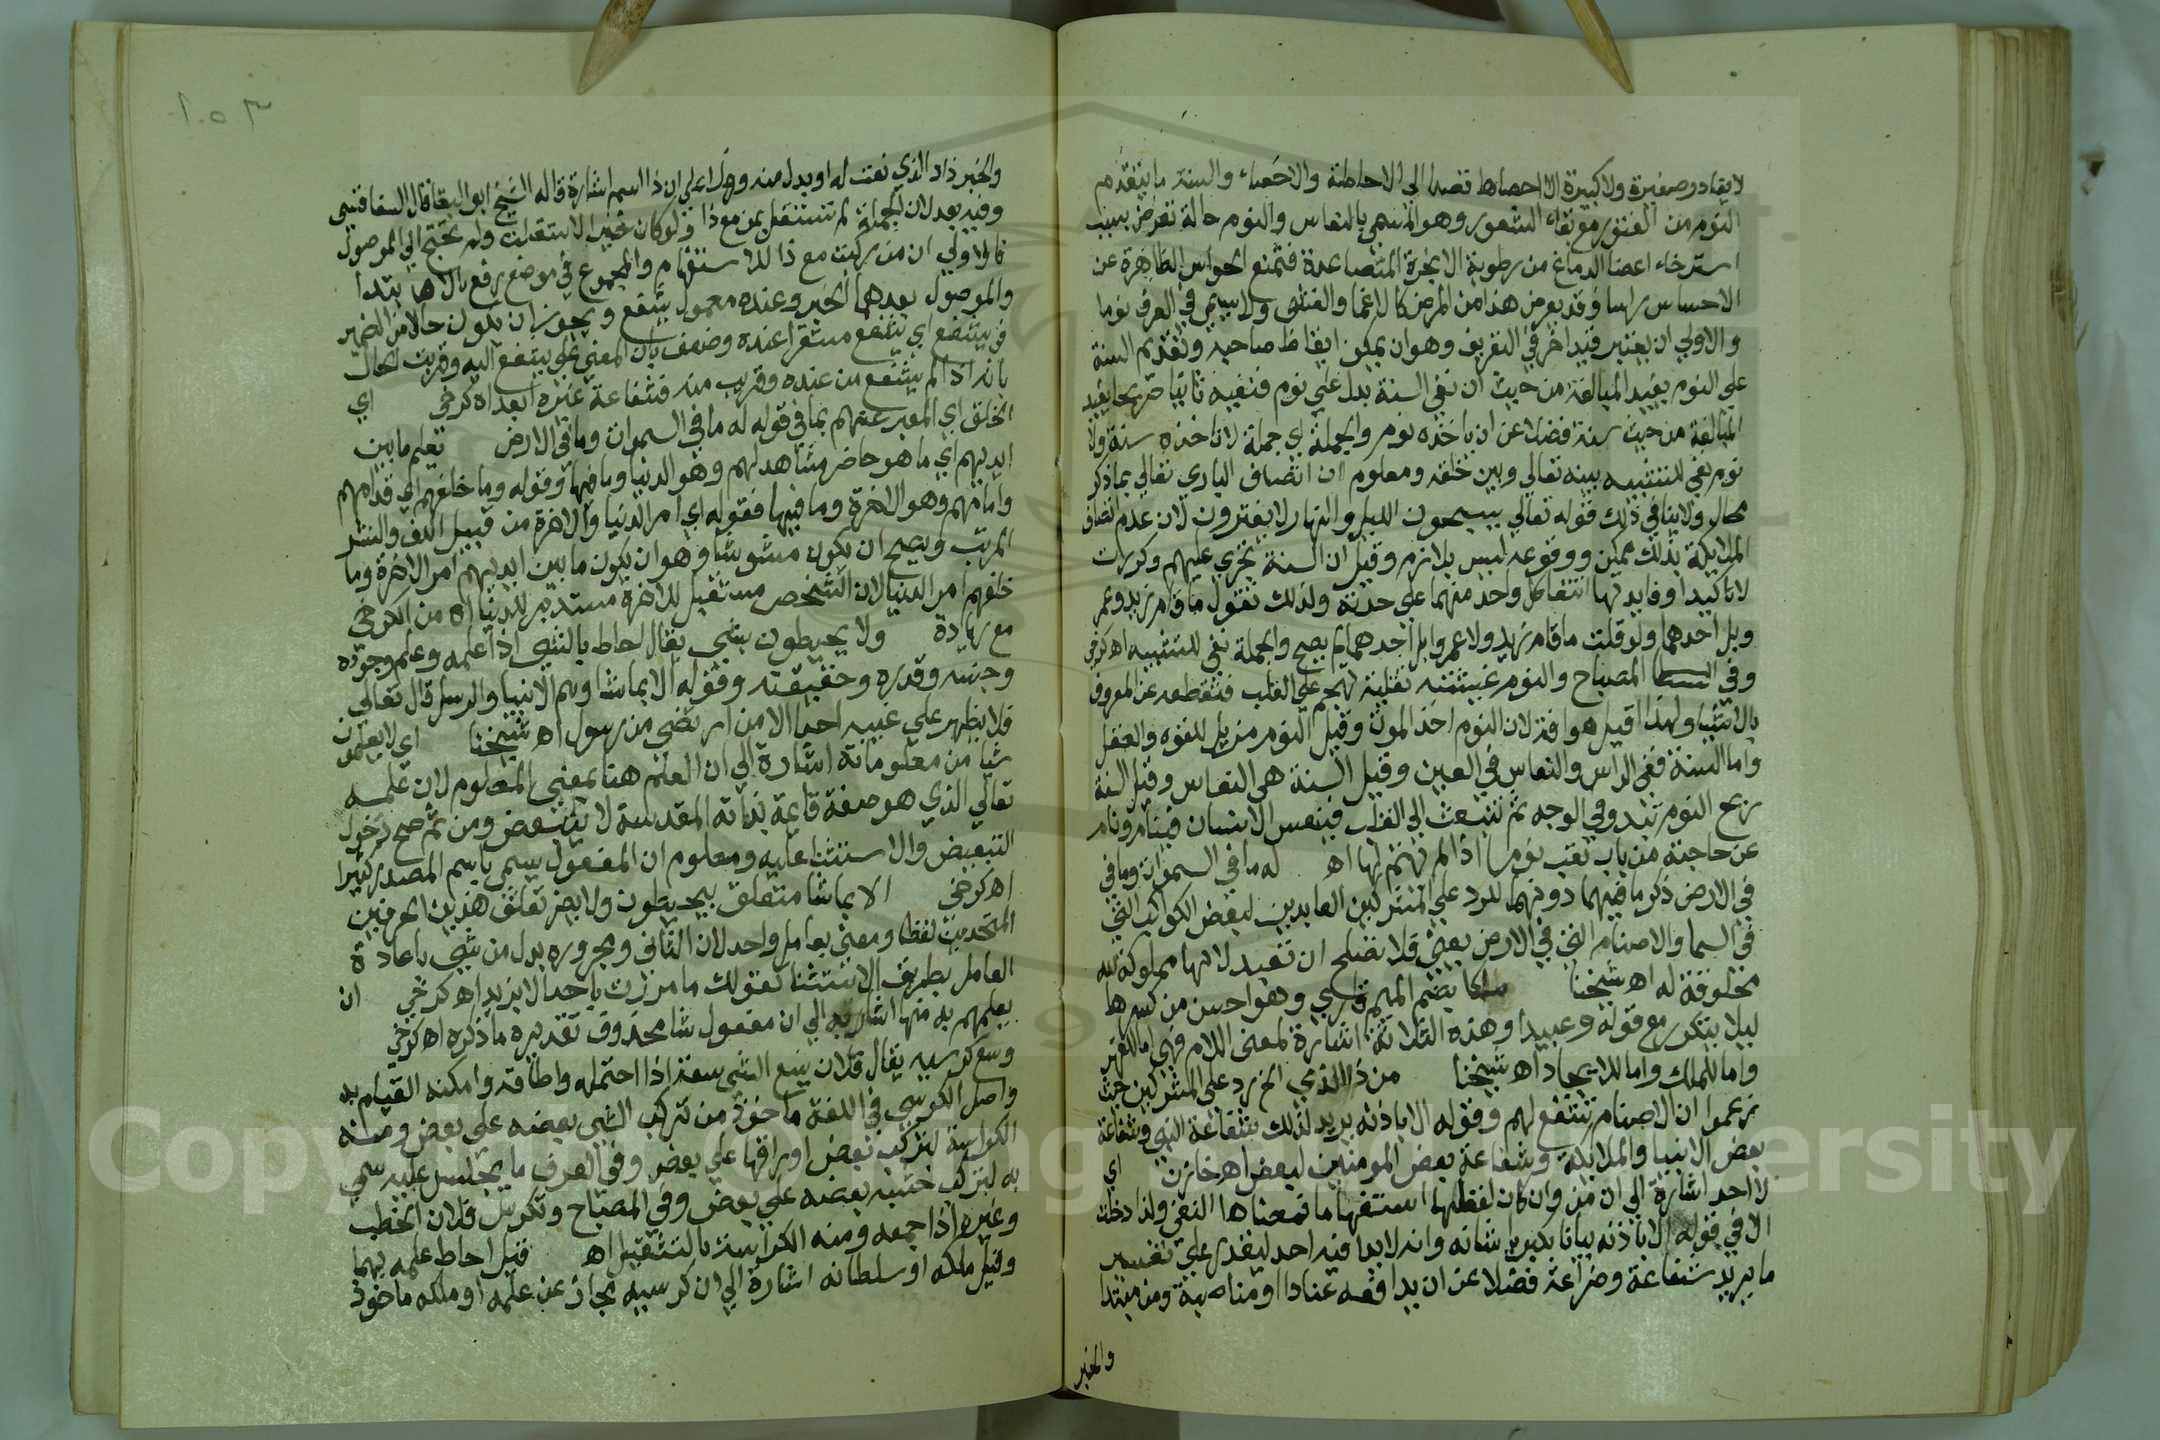 لا يغادر صغيرة ولا كبيرة الا احصاها قصدا الي الاحاطة والاحصاء والسنة ما يتقدم
النوم من الفتور مع بقاء الشعور وهو المسمي بالنعاس والنوم حالة تعرض بسبب
استرخاء اعضا الدماغ من رطوبة الابخرة المتصاعدة فتمنع الحواس الظاهرة عن
الاحساس راسا وقد يعرض هذا من المرض كالاغما والغشى ولا يسمي في العرف نوما
والاولي ان يعتبر قيد اخر في التعريف وهو ان يمكن ايقاظ صاحبه وتقديم السنة
علي النوم يفيد المبالغة من حيث ان نفي السنة يدل علي نوم فنفيه ثانيا صريحا يفيد
المبالغة من حيث سنة فضلا عن ان ياخذه نوم والجملة اي جملة لا تاخذه سنة ولا
نوم نفي للتشبيه بينه تعالي وبين خلقه ومعلوم ان اتصاف الباري تعالي بما ذكر
محال ولا ينافي ذلك قوله تعالي يسبحون الليل والنهار لا يفترون لان عدم اتصاف
الملايكة بذلك ممكن ووقوعه ليس بلازم وقيل ان السنة تجري عليهم وكررت
لا تاكيدا وفايدتها انتفا كل واحد منهما علي حدته ولذلك تقول ما قام زيد وعمر
وبل احدهما ولو قلت ما قام زيد ولا عمروا بل احدهما لم يصح والجملة نفي للتشبيه اه كرخي
وفي المصباح والنوم غشيته ثقيلة تهجم علي القلب فتقطعه عن المعروف
بالاشيا ولهذا قيل هو افة لان النوم اخو الموت وقيل النوم مزيل للقوه والعقل
واما السنة ففي الراس والنعاس في العين وقيل السنة هي النعاس وقيل السنة
ريح النوم تبدو في الوجه ثم تنبعث الي القلب فينعس الانسان فينام ونام
عن حاجته من باب تعب نوما اذا لم يهتم لها اه له ما في السموات وما في
في الارض ذكر ما فيهما دونهما للرد علي المشركين العابدين لبعض الكواكب التي
في السما والاصنام التي في الارض يعني فلا تصلح ان تعبد لانها مملوكة لله
مخلوقة له اه شيخنا ملكا بضم الميم قاري وهو احسن من كسرها
ليلا يتكرر مع قوله وعبيدا وهذه الثلاثة اشارة لمعنى اللام فهي اما للقهر
واما للملك واما للايجاد اه شيخنا من ذا الذي الخ رد على المشركين حيث
زعموا ان الاصنام تشفع لهم وقوله الا باذنه يريد لذلك شفاعة النبي وشفاعة
بعض الانبيا والملايكة وشفاعة بعض المومنين لبعض اه خازن اي
لا احد اشارة الي ان من وان كان لفظها استفهاما فمعناها النفي ولذا دخلت
الا في قوله الا باذنه بيانا لكبريا شانه وانه لا احد ليقدر علي تغيير
ما يريد شفاعة وضراعة فضلا عن ان يدافعه عنادا او مناصبة ومن مبتدا
والخبر
والخبر ذا والذي نعت له او بدل منه وهذا علي ان ذا اسم اشارة قاله الشيخ ابو البقا قال السفاقسي
وفيه بعد لان الجملة لم تستقل بمن مع ذا ولو كان خبرا لاستقلت ولم يحتج الي الموصول
فالاولي ان من ركبت مع ذا للاستفهام والمجموع في موضع رفع بالابتدا
والموصول بعدها الخبر وعنده معمول يشفع ويجوز ان يكون حالا من الضمير
في يشفع اي يشفع مستقرا عنده وضعف بان المعني علي يشفع اليه وقويت الحال
بانه اذا لم يشفع من عنده وقريب منه فشفاعة غيره ابعد اه كرخي اي
الخلق اي المعبر عنهم بما في قوله له ما في السموات وما في الارض يعلم ما بين
ايديهم اي ما هو حاضر مشاهد لهم وهو الدنيا وما فيها وقوله وما خلفهم اي قدامهم
وامامهم وهو الاخرة وما فيها فقوله اي امر الدنيا والاخرة من قبيل اللف والنشر
المرتب ويصح ان يكون مشوشا وهو ان يكون ما بين ايديهم امر الاخرة وما
خلفهم امر الدنيا لان الشخص مستقبل للاخرة مستدبر للدنيا اه من الكرخي
مع زيادة ولا يحيطون بشي يقال احاط بالشي اذا علمه وعلم وجوده
وجنسه وقدره وحقيقته وقوله الا بما شا وهم الانبيا والرسل قال تعالي
فلا يظهر علي غيبه احدا الا من ارتضي من رسول اه شيخنا اي لا يعلمون
شيا من معلوماته اشارة الي ان العلم هنا بمعني المعلوم لان علمه
تعالي الذي هو صفة قايمة بذاته المقدسة لا يتبعض ومن ثم صح دخول
التبعيض والاستثنا عليه ومعلوم ان المفعول يسمي باسم المصدر كثيرا
اه كرخي الا بما شا متعلق بيحيطون ولا يضر تعلق هذين الحرفين
المتحدين لفظا ومعني بعامل واحد لان الثاني ومجروره بدل من شي باعادة
العامل بطريق الاستثنا كقولك ما مررت باحد الا بزيد اه كرخي ان
يعلمهم به منها اشار به الي ان مفعول شا محذوف تقديره ما ذكره اه كرخي
وسع كرسيه يقال فلان يسع الشي سعة اذا احتمله واطاقه وامكنه القيام به
واصل الكرسي في اللغة ماخوذ من تركب الشي بعضه علي بعض ومنه
الكراسة لتركب بعض اوراقها علي بعض وفي العرف ما يجلس عليه سمي
به لتركب خشبه بعضه علي بعض وفي المصباح وتكرس فلان الحطب
وغيره اذا جمعه ومنه الكراسة بالتثقيل اه قيل احاط علمه بهما
وقيل ملكه او سلطانه اشارة الي ان كرسيه مجاز عن علمه او ملكه ماخوذ
Copyright © King Saud University